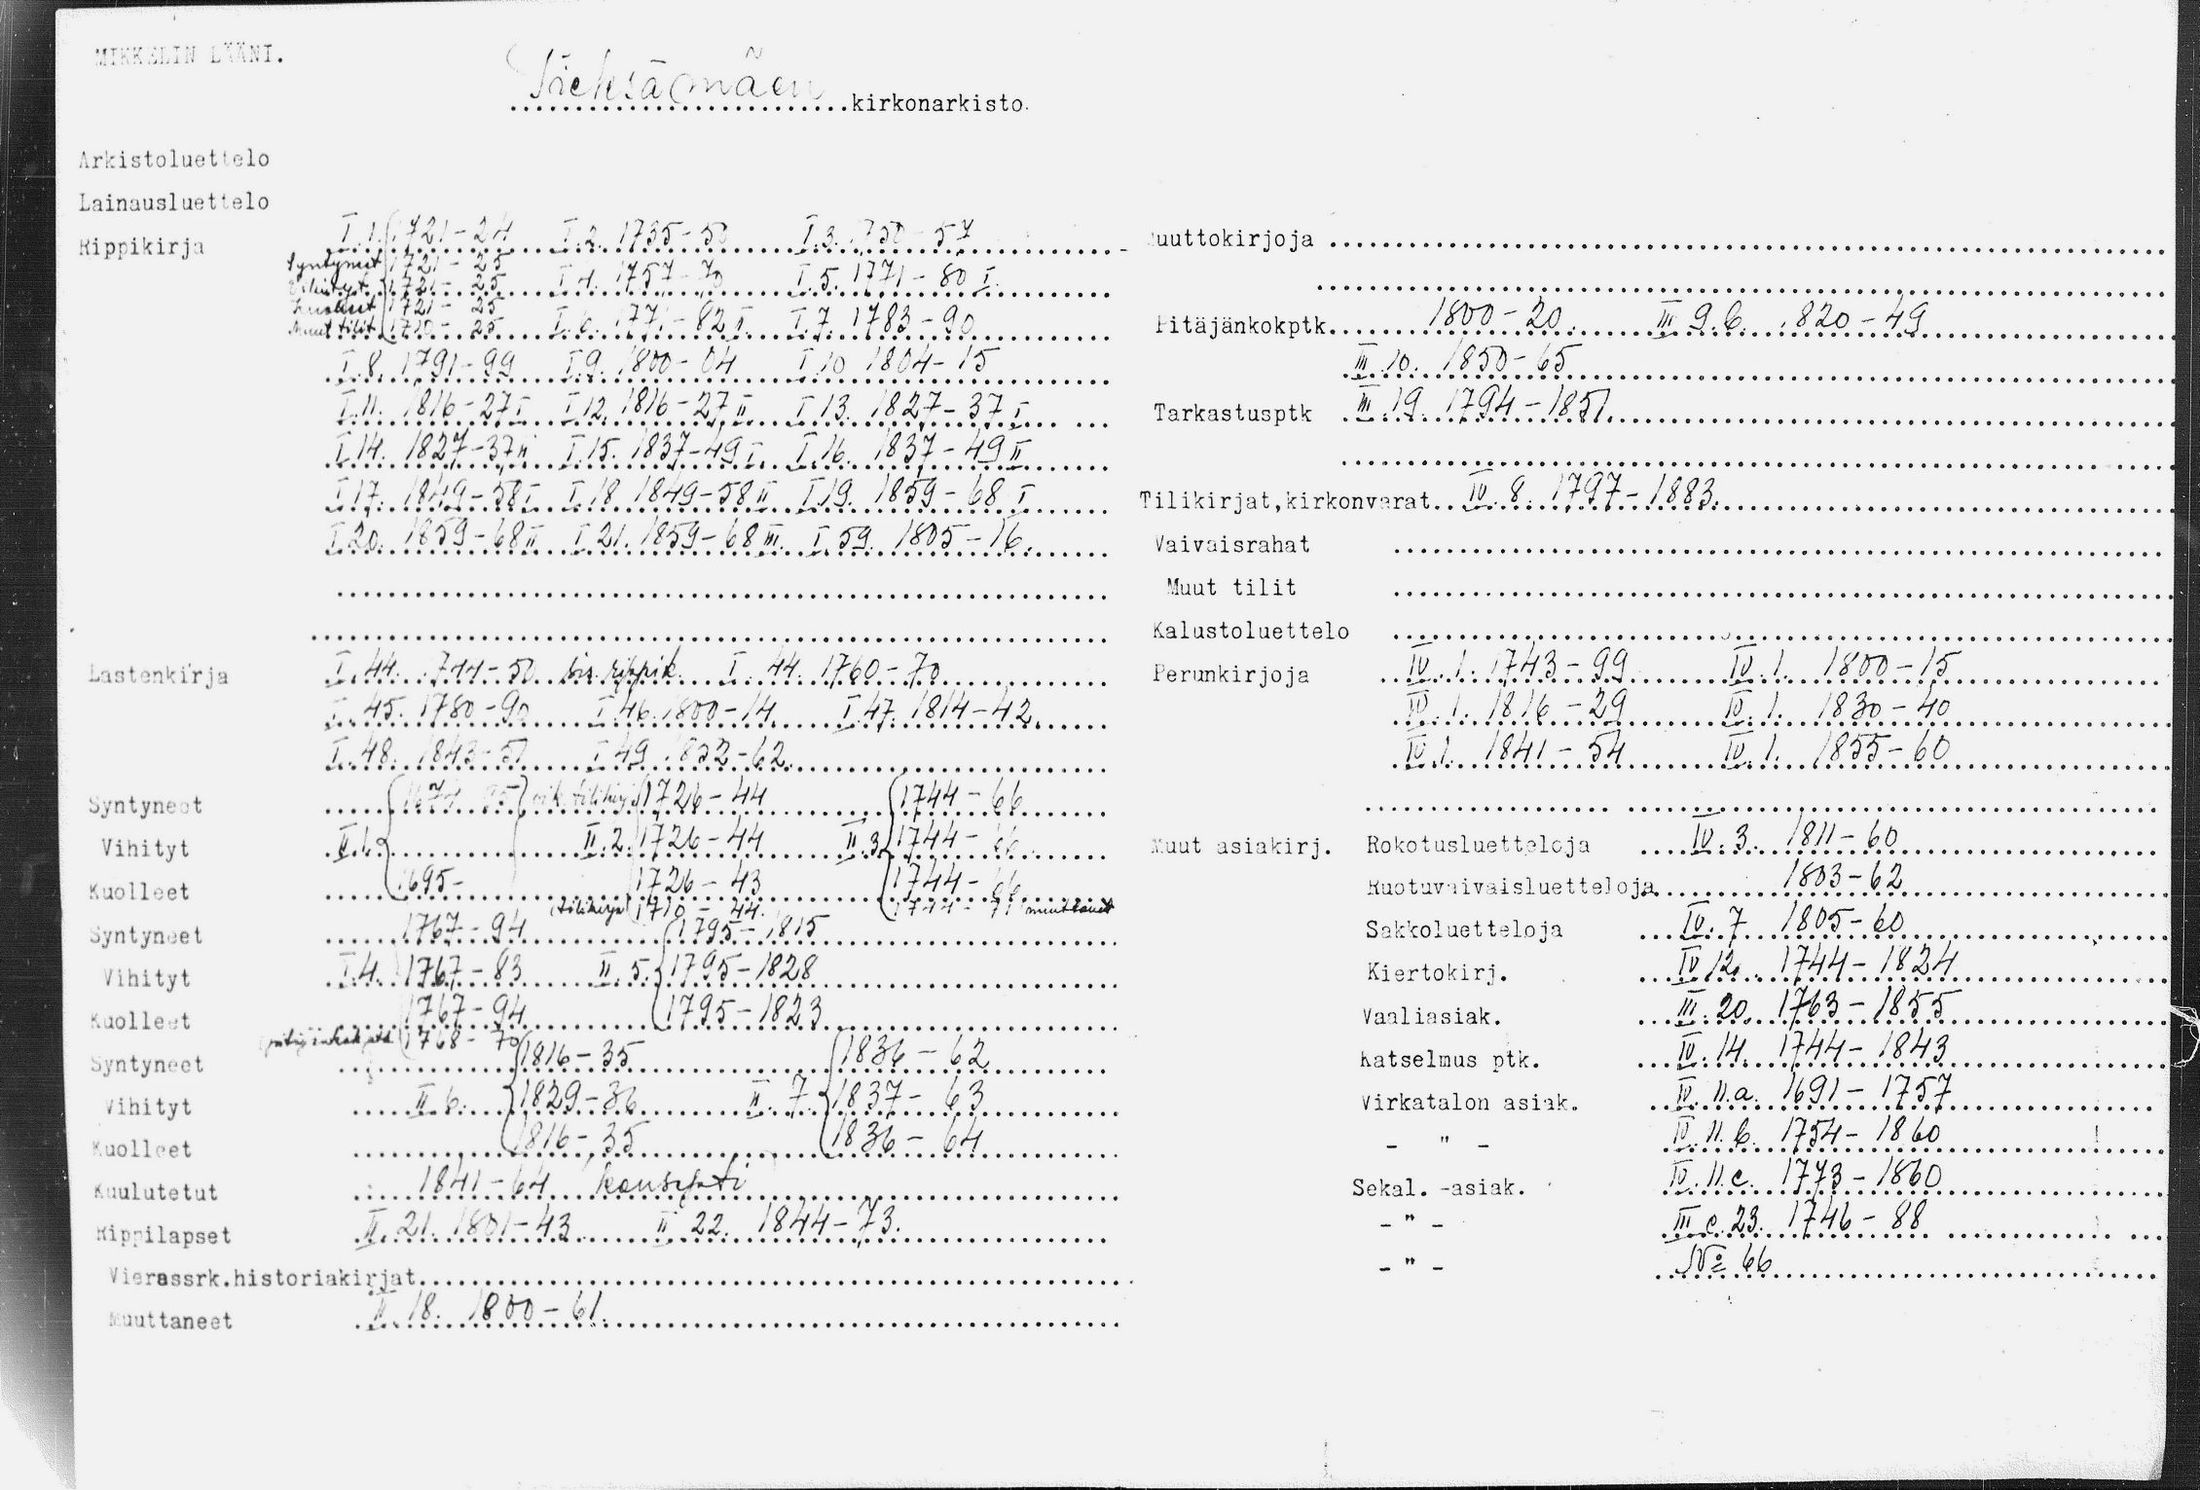 MIKKELIN LÄÄNI.
Pieksämäen kirkonarkisto.
Arkistoluettelo
Lainausluettelo
Rippikirja I.1. 1721-24 I.2. 1735-50 I.3. 1750-57
Syntyneet 1721-25
Vihityt 1721-25 I.4. 1757-70 I.5. 1771-80 I.
Kuolleet 1721-25
Muut tilit 1720-25 I.6. 1771-82 I. I.7. 1783-90
I.8. 1791-99 I.9. 1800-04 I.10 1804-15
I.11. 1816-27 I I.12. 1816-27 II I.13. 1827-37 I
I.14. 1827-37 II I.15. 1837-49 I. I.16. 1837-49 II
I.17. 1849-58 I I.18. 1849-58 II I.19. 1859-68 I
I.20. 1859-68 II I.21. 1859-68 III. I.59. 1805-16.
Lastenkirja I.44. 1744-50 sis. rippik. I.44. 1760-70
I.45. 1780-90 I.46. 1800-14 I.47. 1814-42.
I.48. 1843-51 I.49. 1852-62.
Syntyneet 1726-44 1744-66
Vihityt II.1. II.2. 1726-44 II.3. 1744-66
Kuolleet 1695- 1726-43 1744-66
(tilikirja 1710-44. 1744-71 muuttaneet
Syntyneet 1767-94 1795-1815
Vihityt I.4. 1767-83 II.5. 1795-1828
Kuolleet 1767-94 1795-1823
1768-70
Syntyneet 1816-35 1836-62
Vihityt II.6. 1829-36 II.7. 1837-63
Kuolleet 1816-35 1836-64
Kuulutetut 1841-64 konsepti
Rippilapset II.21. 1801-43 II.22. 1844-73.
Vierassrk.historiakirjat
Muuttaneet II.18. 1800-61.
Muuttokirjoja
Pitäjänkokptk. 1800-20. III 9.b. 1820-49
III.10. 1850-65
Tarkastusptk III.19. 1794-1851.
Tilikirjat,kirkonvarat IV.8. 1797-1883.
Vaivaisrahat
Muut tilit
Kalustoluettelo
Perunkirjoja IV.1. 1743-99 IV.1. 1800-15
IV.1. 1816-29 IV.1. 1830-40
IV.1. 1841-54 IV.1. 1855-60
Muut asiakirj. Rokotusluetteloja IV.3. 1811-60
Ruotuvaivaisluetteloja 1803-62
Sakkoluetteloja IV.7 1805-60
Kiertokirj. IV 12. 1744-1824
Vaaliasiak. III.20. 1763-1855
Katselmus ptk. IV.14. 1744-1843
Virkatalon asiak. IV.11.a. 1691-1757
- " - IV.11.b. 1754-1860
Sekal. -asiak. IV.11.c. 1773-1860
- " - III c.23. 1746-88
- " - No 66